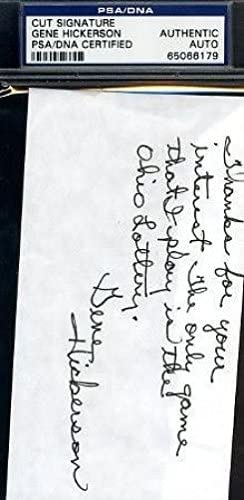 PSA/DNA
CUT SIGNATURE
GENE HICKERSON
PSA/DNA CERTIFIED
AUTHENTIC
AUTO
65066179
Thanks for your
interest. The only game
that I play is the
Ohio Lottery.
Gene
Hickerson